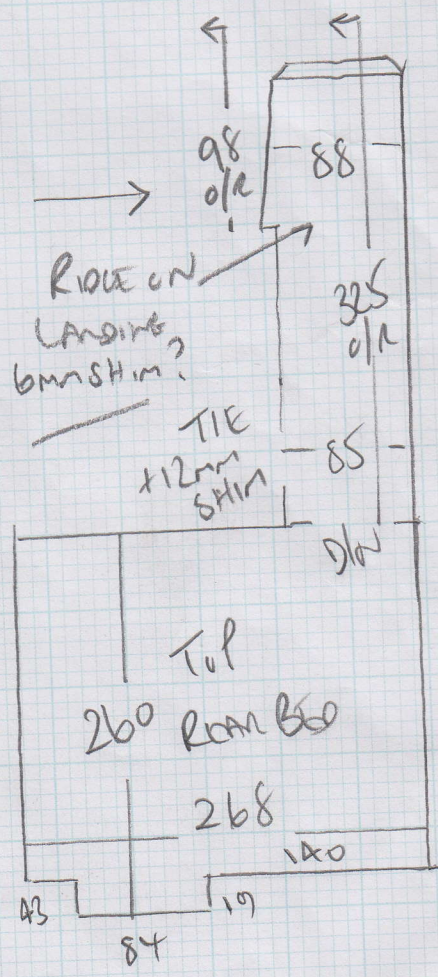 98
O/R
88
RIDGE ON
LANDING
6mm SHIM?
325
O/R
TIE
+12mm
SHIM
85
D/W
TOP
260 REAR BED
268
140
43
19
84